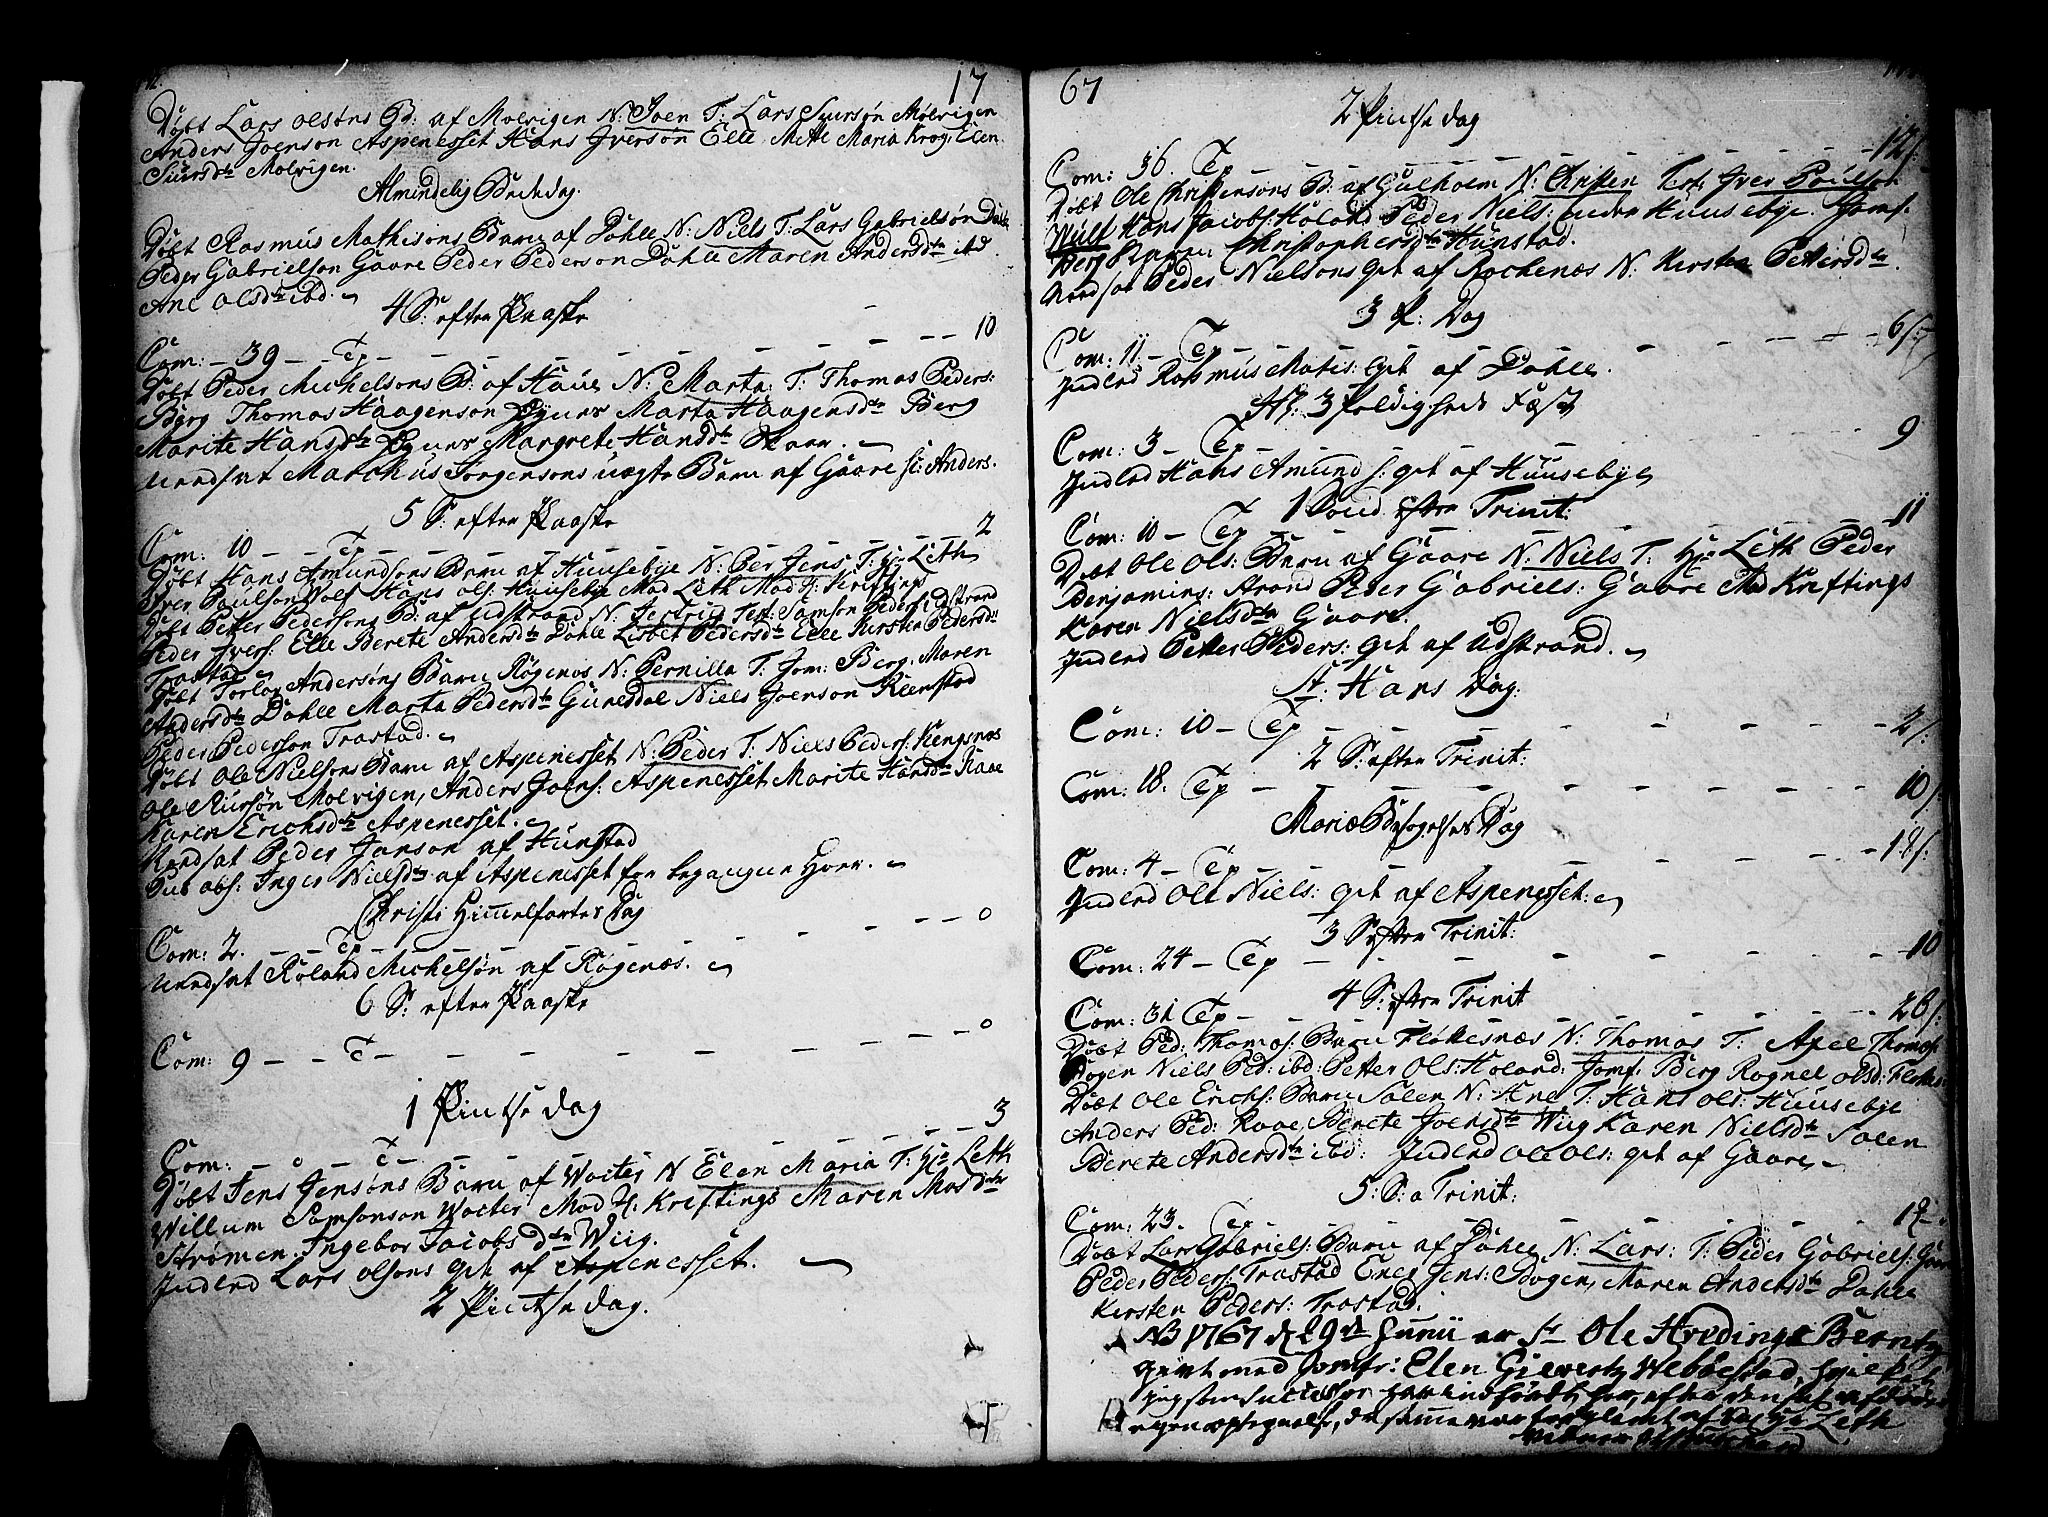 17
Døbt Lars Olsøns B: af Molvigen N: Joen T: Lars Siursøn Molvigen
Anders Joenson Aspenesset Hans Iversøn Elle Mette Maria Krog, Elen
Siursdtr Molvigen.
Almindelig Bededag.
Døbt Rasmus Mathisons Barn af Dahle N: Niels T: Lars Gabrielsøn Dahle
Peder Gabrielson Gaare Peder Pederson Dahle Maren Andersdtr ibd
Ane Olsdtr ibd.
4 S: efter Paaske
Com: - 39 - Tep - 10
Døbt Peder Michelsons B: af Haue N: Marta T: Thomas Peders:
Berg Thomas Haagenson Marta Haagensdtr Berg
Marite Hansdtr Margrete Hansdtr Skaar.
Nendsat Marchus Jorgensons uægte Barn af Gaare N: Anders.
5 S: efter Paaske
Com: 10 - Tep - 2
Døbt Hans Amundsons Barn af Huusebye N: Per Jens T: Hr Leth
Iver Paulson Wolf Hans Ols: Huusebye Mad Leth Mad H: Kreftings
Døbt Petter Pedersons B: af Udstrand N: Test: Samson Peders: Udstrand
Peder Ivers: Elle Berete Andersdtr Dahle Lisbet Pedersdtr Elle Kirsten Pedersdtr
Trastad
Døbt Torlov Andersøns Barn Røgenes N: Pernilla T: Jom: Berg, Maren
Andersdtr Dahle Marta Pedersdtr Gunesdal Niels Joenson Reenstad
Peder Pederson Trastad.
Døbt Ole Nielsons Barn af Aspenesset N: Peder T: Niels Peders: Kengsnes
Ole Siursøn Molvigen, Anders Joens: Aspenesset Marite Hansdtr Raae
Karen Erichsdtr Aspenesset.
Nendsat Peder Janson af Hunstad
Pub abs: Inger Nielsdtr af Aspenesset for begangne Hoer.
Christi Himmelfartes Dag
Com: 2. - Tep - 0
Nendsat Roland Michelsøn af Røgenæs.
6 S: efter Paaske
Com: 9 - T - 0
1 Pintse dag
Com: - 0 - T - 3
Døbt Jens Jensøns Barn af Wolter N Elen Maria T: Hr Leth
Willum Samsonson Wolter Mad H. Kreftings Maren Masdtr
Strømen. Ingebor Jacobsdtr Wiig.
Indled Lars Olsons qvt af Aspenesset.
2 Pintse dag.
67
2 Pintse dag
Com: 36. Tep - 12/.
Døbt Ole Christensons B: af Gulholm N: Christen Test: Iver Paulson
Wulf Hans Jacobs: Holand Peder Niels: Huusebye. Jomf:
Berg Christophersdtr Hunstad.
Nendsat Peder Nielsons qvt af Rochenæs N: Kersten Pettersdtr
3 P: Dag
Com: 11 - Tep - 6/
Indled Rasmus Matis: qvt af Dahle.
H: 3 foldigheds Fæst
Com: 3 - Tep - 9
Indled Hans Amunds: qvt af Huusebye
1 Sond. efter Trinit:
Com: 10 - Tep - 11
Døbt Ole Ols: Barn af Gaare N: Niels T: Hr Leth Peder
Benjamins: Strand Peder Gabriels: Gaare Mad Kreftings
Karen Nielsdtr Gaare.
Indled Petter Peders: qvt af Udstrand.
St: Hans Dag:
Com: 10 - Tep - 2/.
2 S: efter Trinit:
Com: 18. Tep - 10/.
Mariæ Besøgelses Dag
Com: 4 - Tep - 18/:
Indled Ole Niels: qvt af Aspenesset.
3 S efter Trinit:
Com: 24 - Tep - 10
4 S: efter Trinit
Com: 31 Tep - 26/.
Døbt Ped: Thomas: Barn Flokesnæs N: Thomas T: Axel Thomes:
Bogen Niels Ped: ibd: Petter Ols: Holand: Jomf: Berg Ragnel Olsd: Flokes:
Døbt Ole Erichs: Barn Salen N: Ane T: Hans Ols: Huusebye
Anders Ped: Raae Berete Joensdtr Wiig Karen Nielsdtr Salen
Berete Andersdtr ibd: Indled Ole Ols: qvt af Gaare
5: S: a Trinit:
Com: 23. Tep - 12
Døbt Lars Gabriels: Barn af Dahle N: Lars: T: Peder Gabriels: Gaare
Peder Peders: Trastad Ener Jens: Bogen, Maren Andersdtr Dahle
Kersten Peders: Trastad.
NB 1767 d 29de Junii er Sr Ole Hveding Berntz
givt med Jomfr: Elen Gievertz Webbestad, hvilket
jeg som Successor har indført her, efter
egen da samme var forglemt af Leth